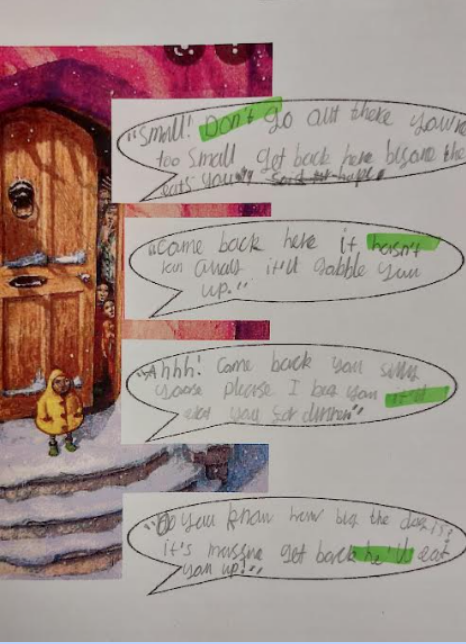 "Small! Don't go out there you're
too small get back here before the
eats you"
"Come back here it hasn't
it'll gobble you
up."
"Ahhh! Come back you silly
goose please I beg you it'll
eat you for dinner"
"Do you know how big the dog is?
it's massive get back he'll eat
you up!"